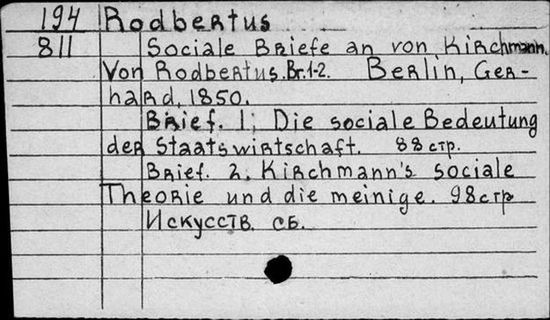 194 Rodbertus
811 Sociale Briefe an von Kirchmann.
Von Rodbertus. Br. 1-2. Berlin, Ger-
hard, 1850.
Brief. 1; Die sociale Bedeutung
der Staatswirtschaft. 88 стр.
Brief. 2. Kirchmann's sociale
Theorie und die meinige. 98 стр
Искусств. сб.